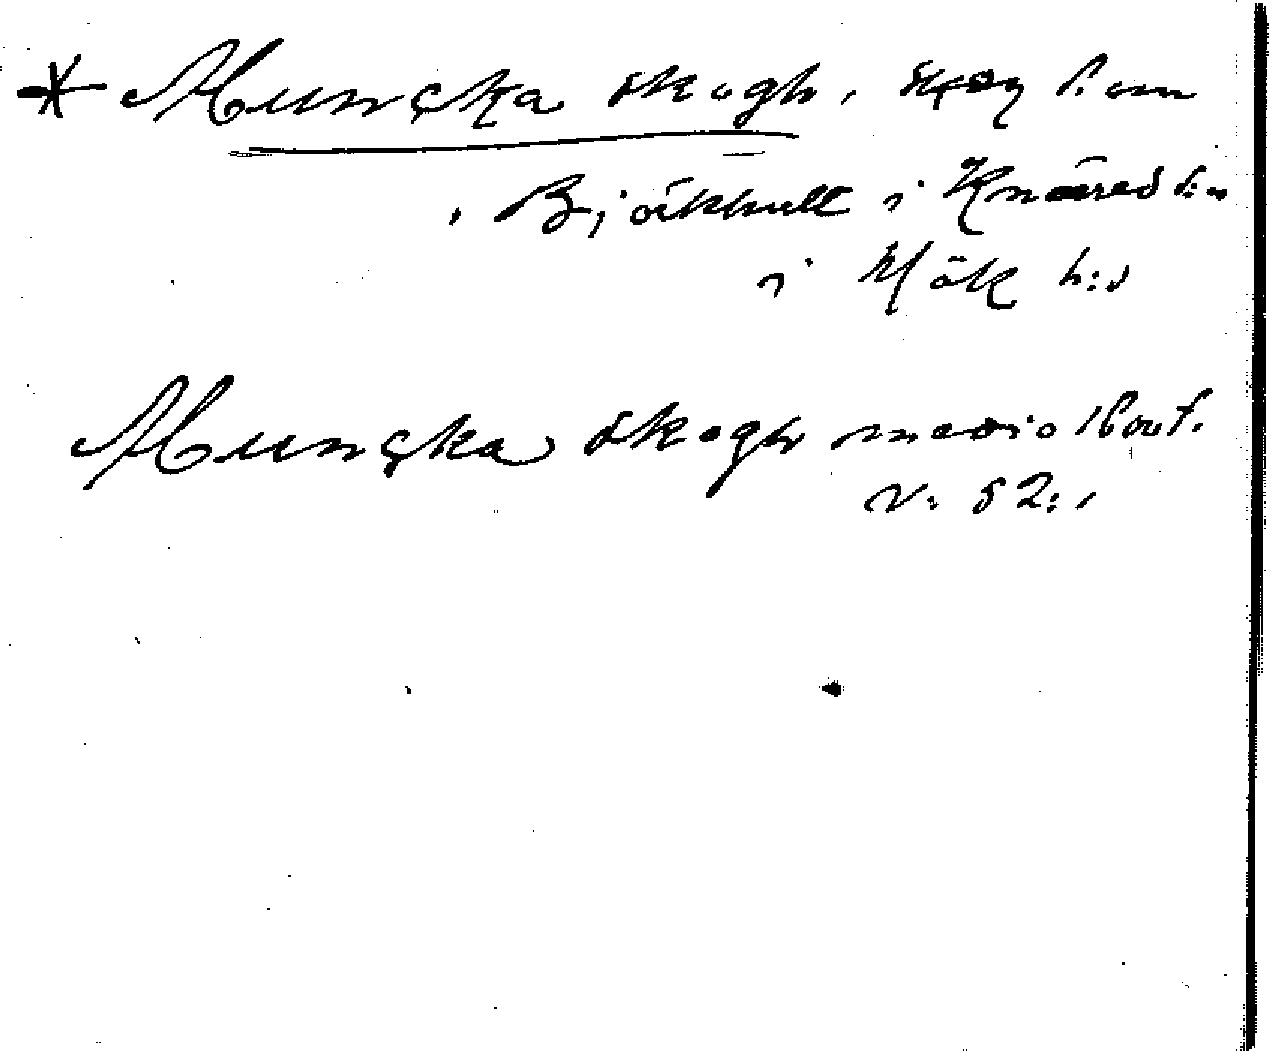 * Munçka skogh, skog
, Björkhult i Knäred s:n
i Hök h:d
Munçka skogh medio 1600 t.
V. 52:1